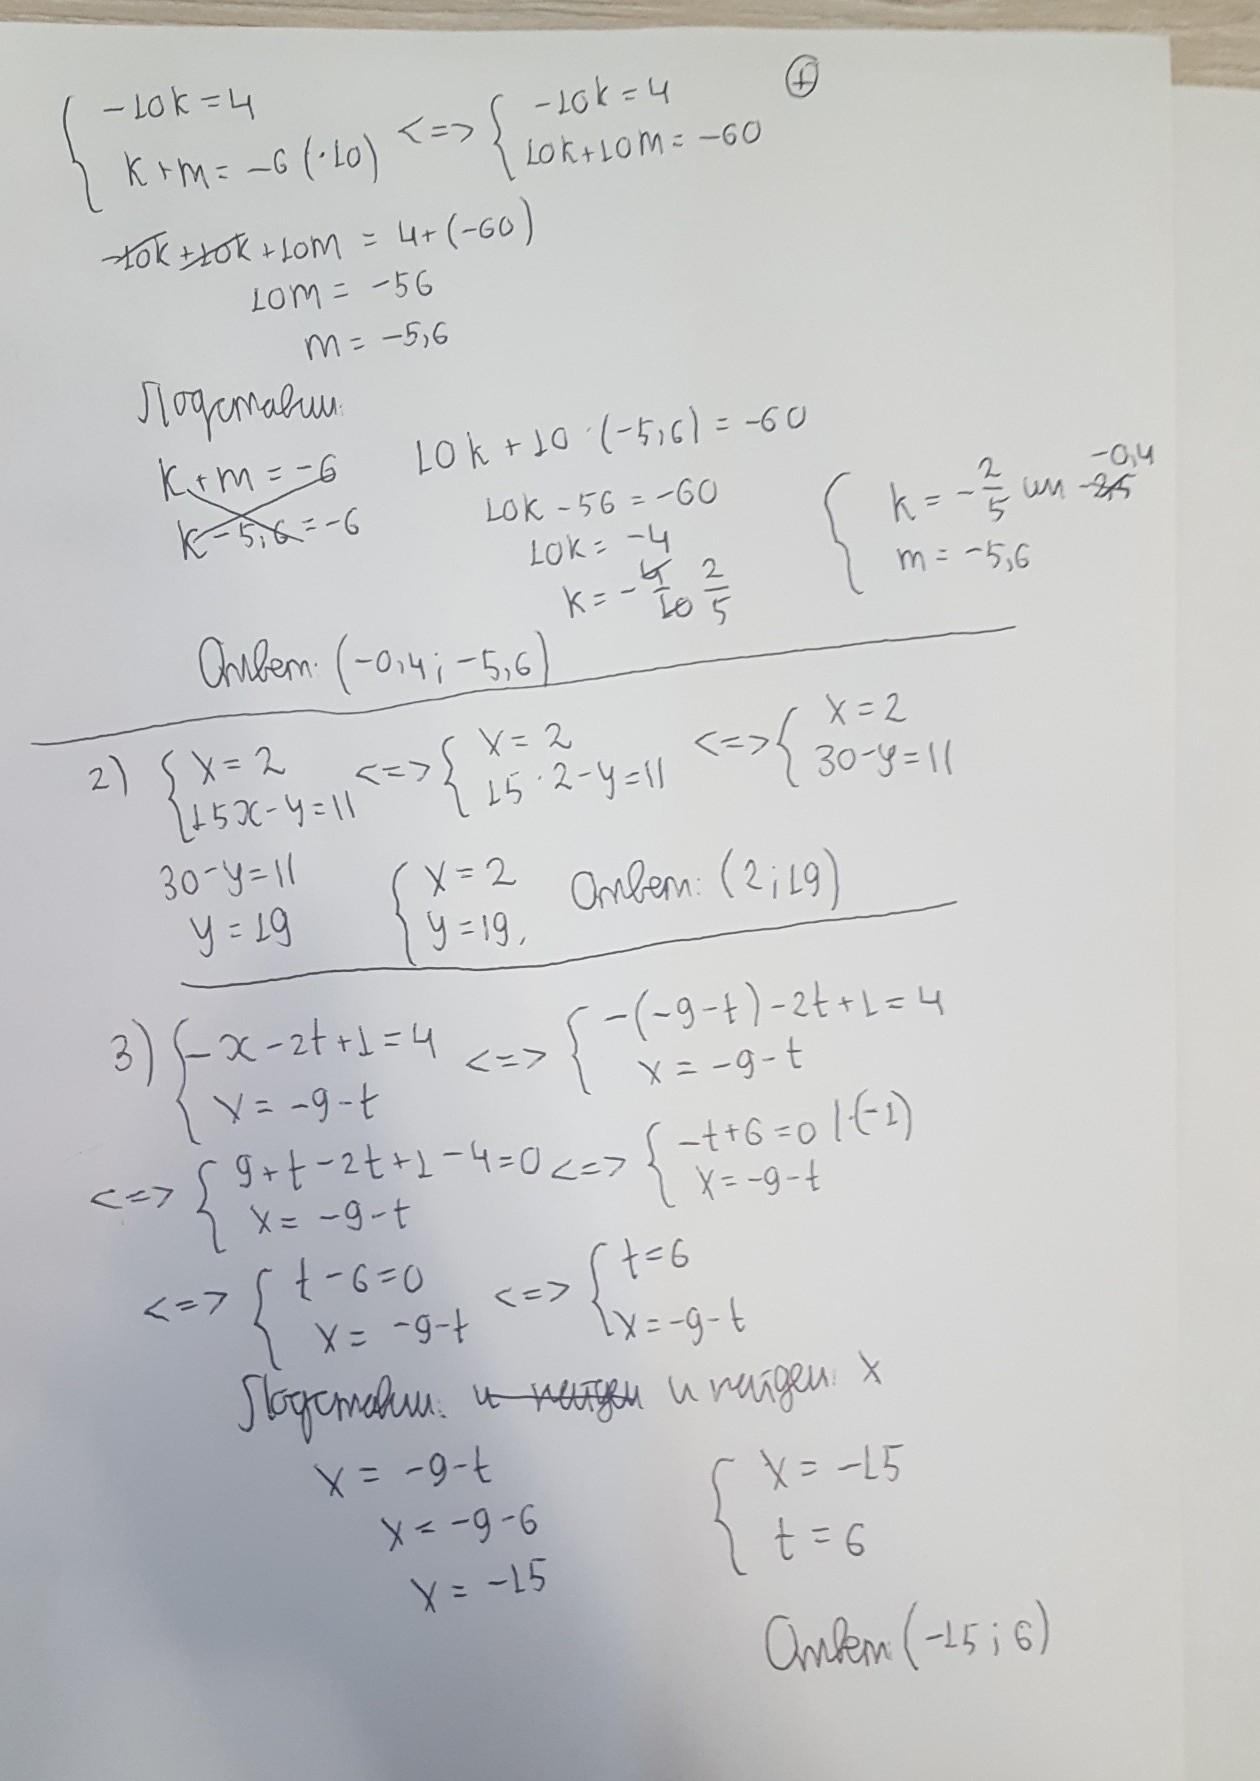 { -10k = 4
k + m = -6 (·10) <=> { -10k = 4
10k + 10m = -60 ⊕
-10k + 10k + 10m = 4 + (-60)
10m = -56
m = -5,6
Подставим:
k + m = -6
k - 5,6 = -6
10k + 10 · (-5,6) = -60
10k - 56 = -60
10k = -4
k = - 4/10 2/5
{ k = - 2/5 или -0,4
m = -5,6
Ответ: (-0,4; -5,6)
2) { x = 2
15x - y = 11 <=> { x = 2
15 · 2 - y = 11 <=> { x = 2
30 - y = 11
30 - y = 11
y = 19
{ x = 2
y = 19,
Ответ: (2; 19)
3) { -x - 2t + 1 = 4
x = -9 - t <=> { -(-9 - t) - 2t + 1 = 4
x = -9 - t
<=> { 9 + t - 2t + 1 - 4 = 0
x = -9 - t <=> { -t + 6 = 0 | · (-1)
x = -9 - t
<=> { t - 6 = 0
x = -9 - t <=> { t = 6
x = -9 - t
Подставим: и найдем и найдем x
x = -9 - t
x = -9 - 6
x = -15
{ x = -15
t = 6
Ответ: (-15; 6)